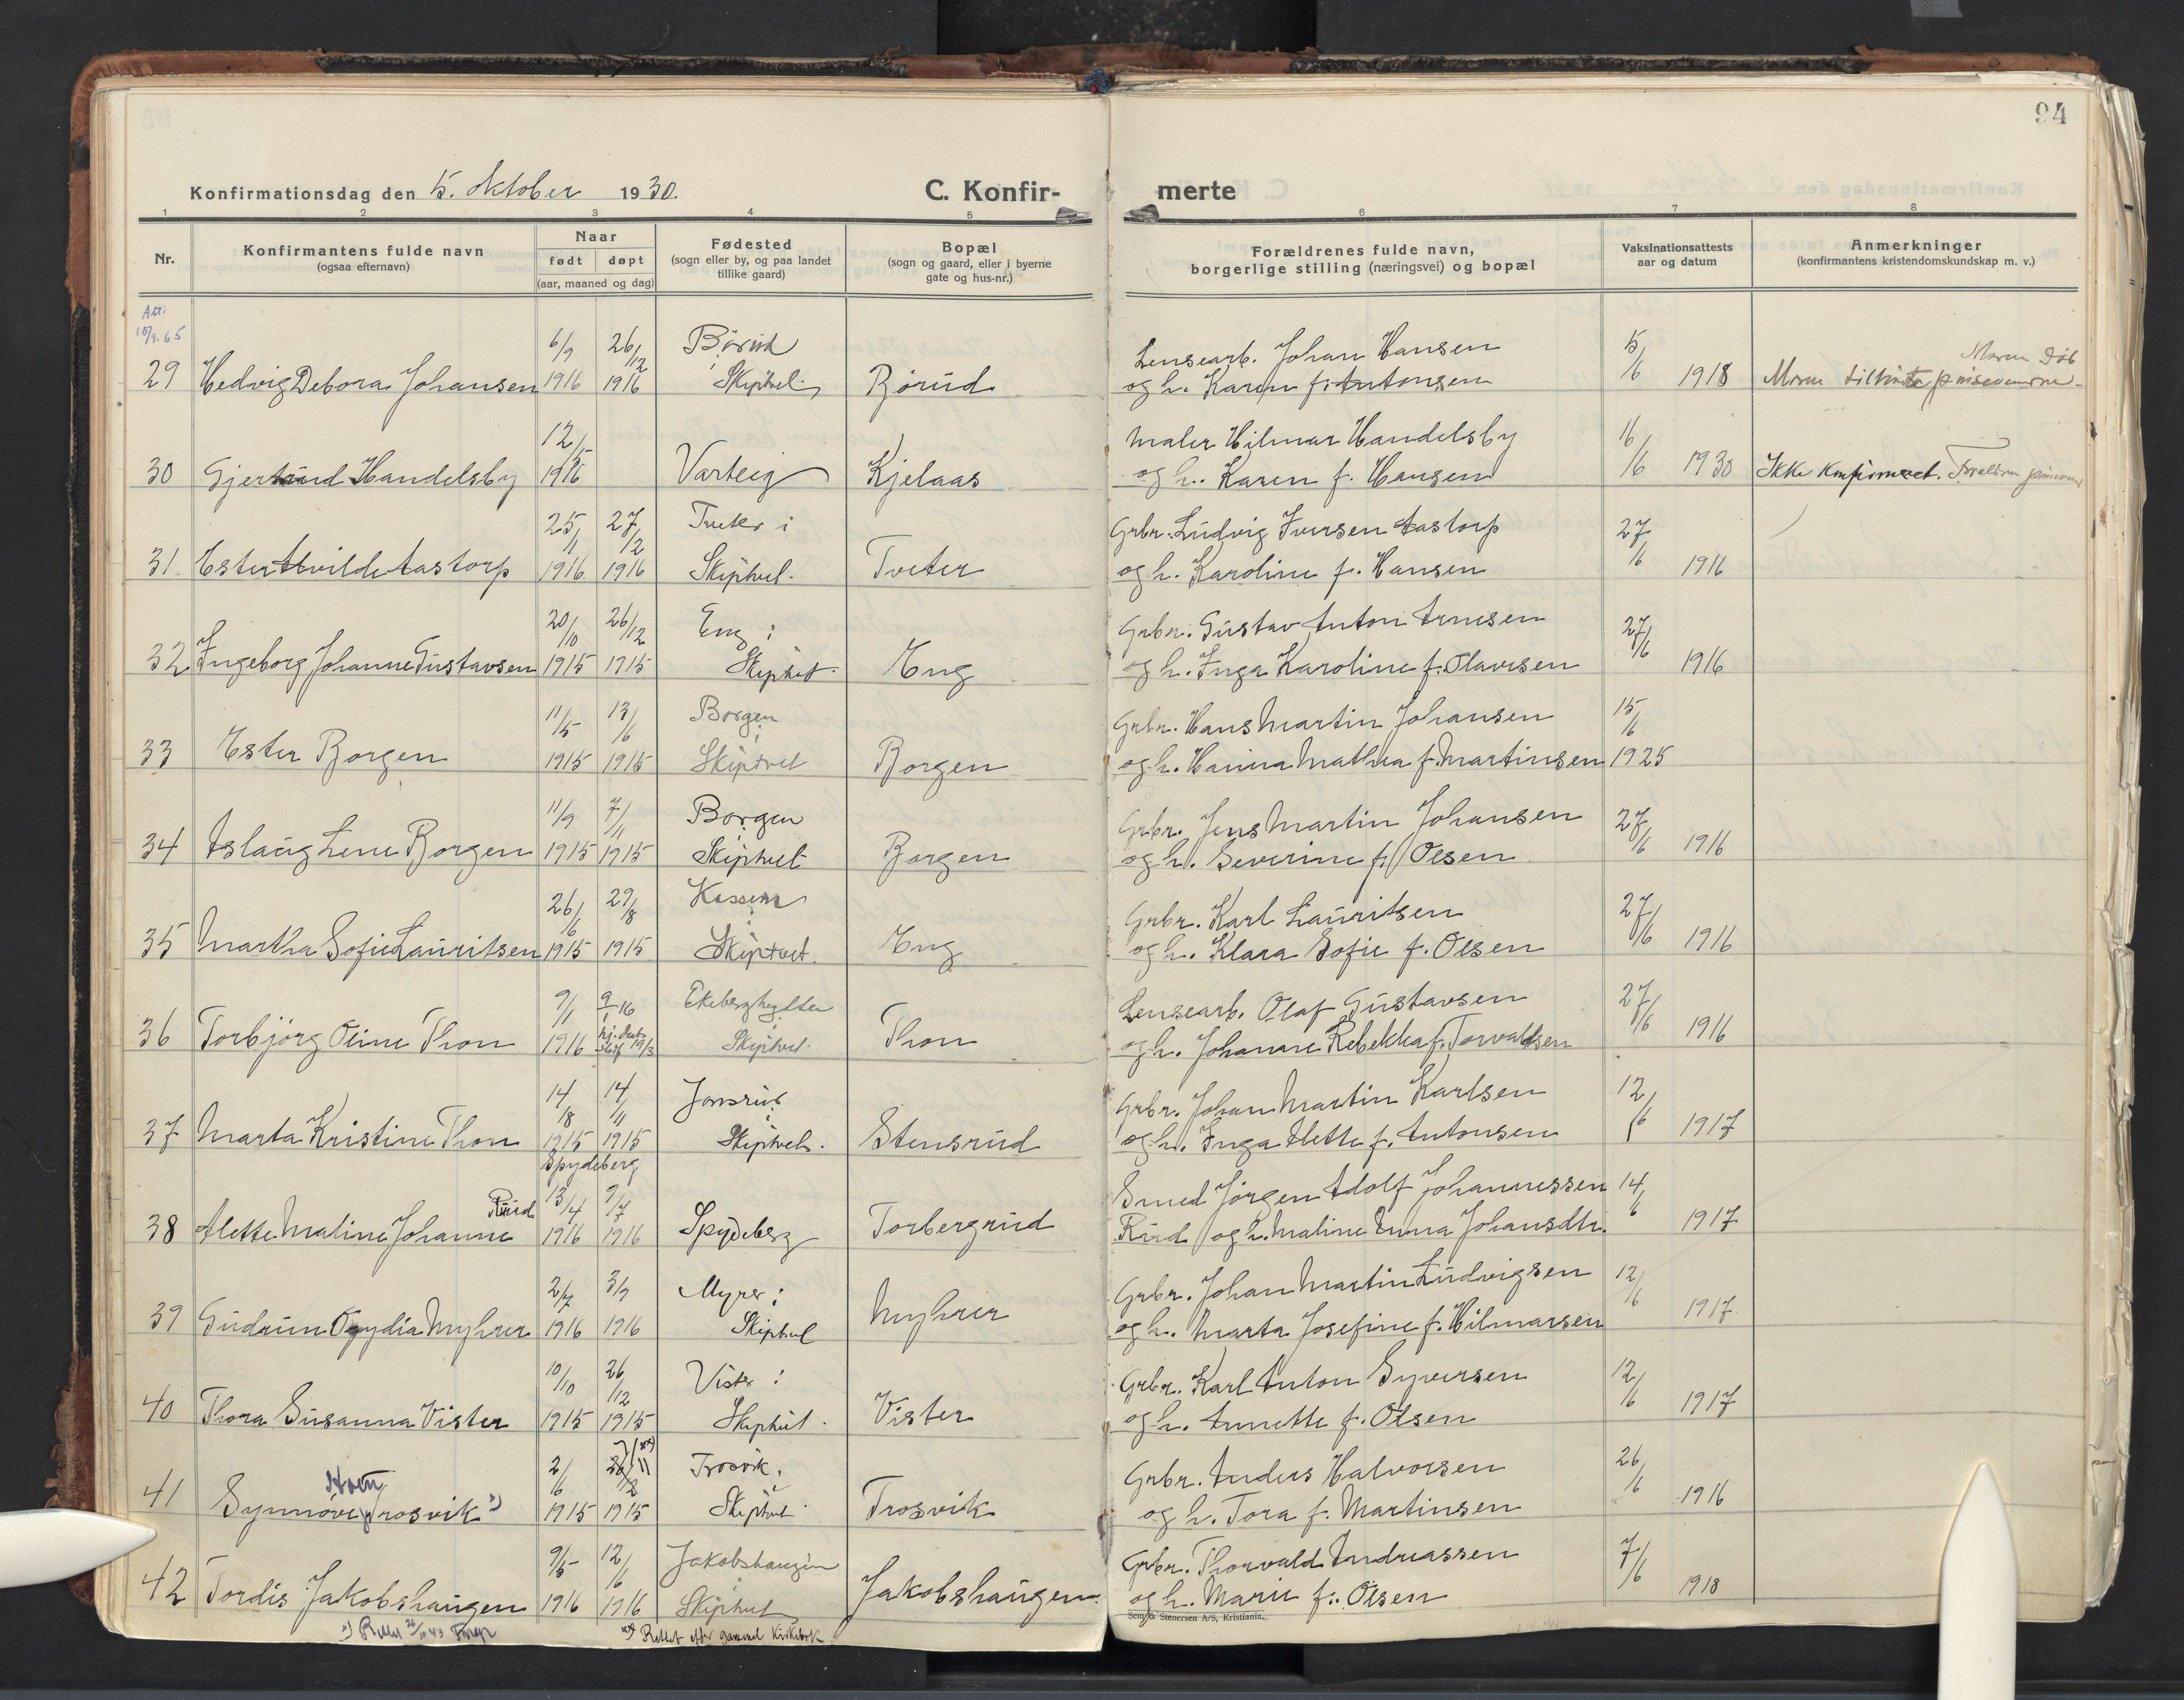 94
Konfirmationsdag den 5. Oktober 1930.
C. Konfir-
merte
1 2 3 4 5 6 7 8
Nr.
Konfirmantens fulde navn
(ogsaa efternavn)
Naar
født døpt
(aar, maaned og dag)
Fødested
(sogn eller by, og paa landet
tillike gaard)
Bopæl
(sogn og gaard, eller i byerne
gate og hus-nr.)
Forældrenes fulde navn,
borgerlige stilling (næringsvei) og bopæl
Vaksinationsattests
aar og datum
Anmerkninger
(konfirmantens kristendomskundskap m. v.)
Att.
6/9 26/12 Børud i Lensearb. Johan Hansen 5/6
29 Hedvig Debora Johansen 1916 1916 Skiptvet Børud og h. Karen f. Antonsen 1918
12/5 Maler Hilmar Handelsby 16/6
30 Gjertrud Handelsby 1916 Varteig Kjelaas og h. Karen f. Hansen 1930 Ikke konfirmeret.
25/1 27/2 Tveter i Grbr. Ludvig Iversen Aastorp 27/6
31 Ester Alvilde Aastorp 1916 1916 Skiptvet. Tveter og h. Karoline f. Hansen 1916
20/10 26/12 Eng i Grbr. Gustav Anton Arnesen 27/6
32 Ingeborg Johanne Gustavsen 1915 1915 Skiptvet. Eng og h. Inga Karoline f. Olavesen 1916
11/5 13/6 Borgen i Grbr. Hans Martin Johansen 15/6
33 Ester Borgen 1915 1915 Skiptvet Borgen og h. Hanna Mathea f. Martinsen 1925
11/9 7/11 Borgen Grbr. Jens Martin Johansen 27/6
34 Aslaug Lene Borgen 1915 1915 Skiptvet Borgen og h. Severine f. Olsen 1916
26/6 29/8 Grbr. Karl Lauritsen 27/6
35 Martha Sofie Lauritsen 1915 1915 Skiptvet. Eng og h. Klara Sofie f. Olsen 1916
9/1 Ekeberghytten Lensearb. Olaf Gustavsen 27/6
36 Torbjørg Oline Thon 1916 Skiptvet. Thon og h. Johanne Rebekka f. Torvaldsen 1916
14/8 14/11 Jonsrud i Grbr. Johan Martin Karlsen 12/6
37 Marta Kristine Thon 1915 1915 Skiptvet. Stensrud og h. Inga Alette f. Antonsen 1917
Spydeberg
Ruud 13/4 9/7 Smed Jørgen Adolf Johannessen 14/6
38 Alette Maline Johanne 1916 1916 Spydeberg Torbergrud Ruud og h. Maline Emma Johansdtr. 1917
2/7 3/9 Myrer i Grbr. Johan Martin Ludvigsen 12/6
39 Gudrun Ogydia Myhrer 1916 1916 Skiptvet Myhrer og h. Marta Josefine f. Hilmarsen 1917
10/10 26/12 Vister i Grbr. Karl Anton Syversen 12/6
40 Thora Susanna Vister 1915 1915 Skiptvet. Vister og h. Annette f. Olsen 1917
2/6 Trosvik i Grbr. Anders Halvorsen 26/6
41 Synnøve Trosvik x) 1915 1915 Skiptvet Trosvik og h. Tora f. Martinsen 1916
9/5 12/6 Jakobshaugen i Grbr. Thorvald Andreassen 7/6
42 Tordis Jakobshaugen 1916 1916 Skiptvet Jakobshaugen og h. Marie f. Olsen 1918
xx) Rettet efter gammel kirkebok
Sem & Stenersen A/S, Kristiania.